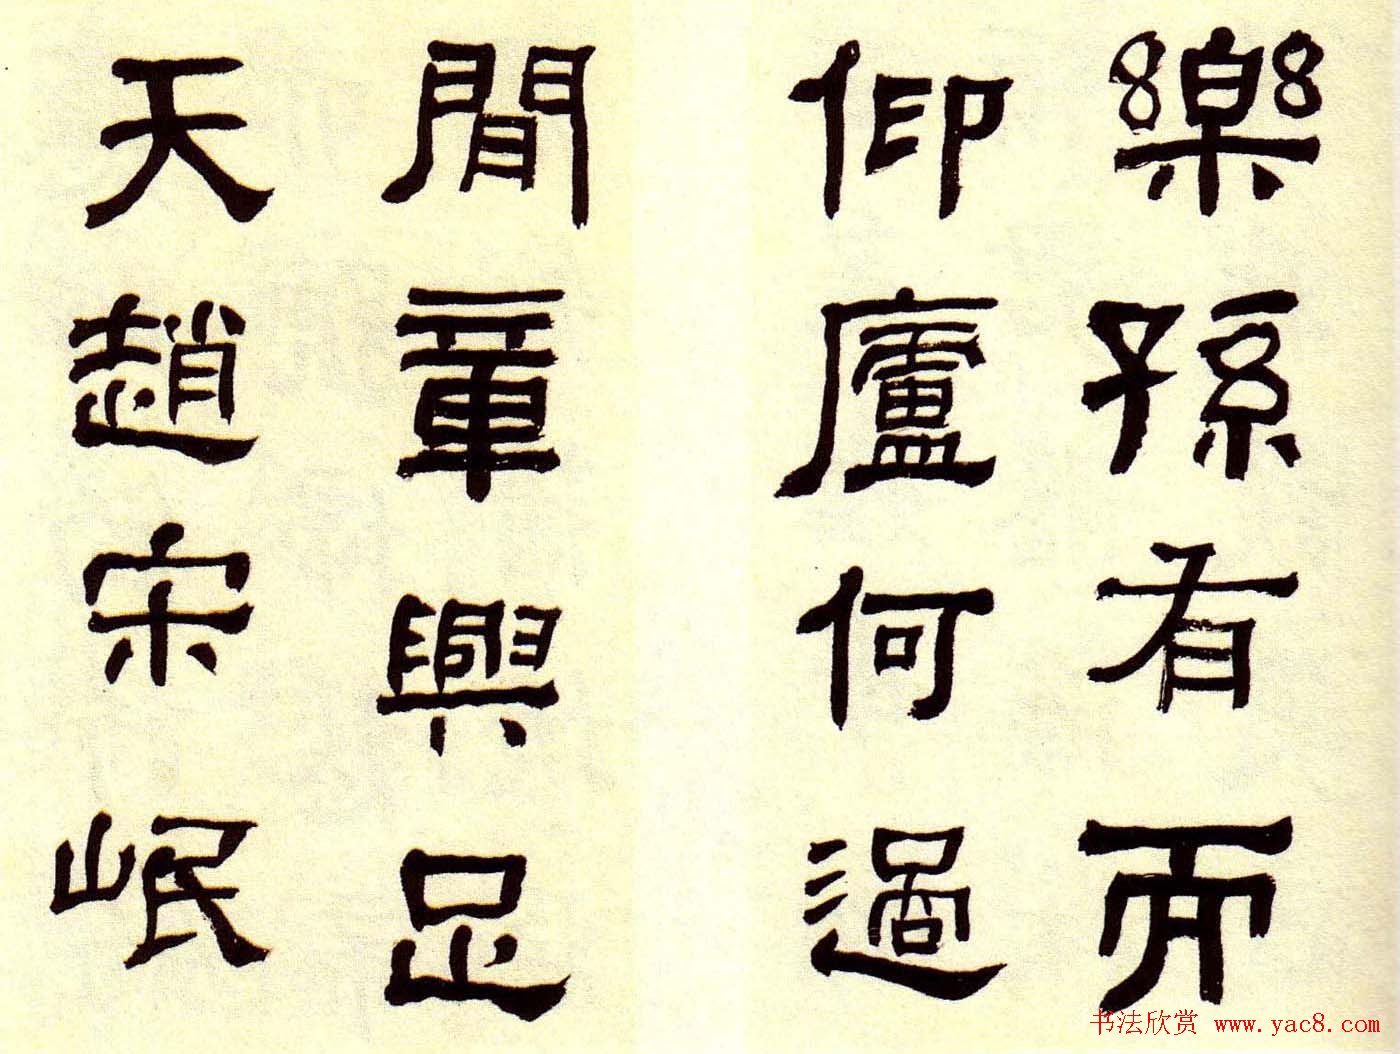 樂孫有而
仰廬何過
閒章興足
天趙宋岷
书法欣赏 www.yac8.com